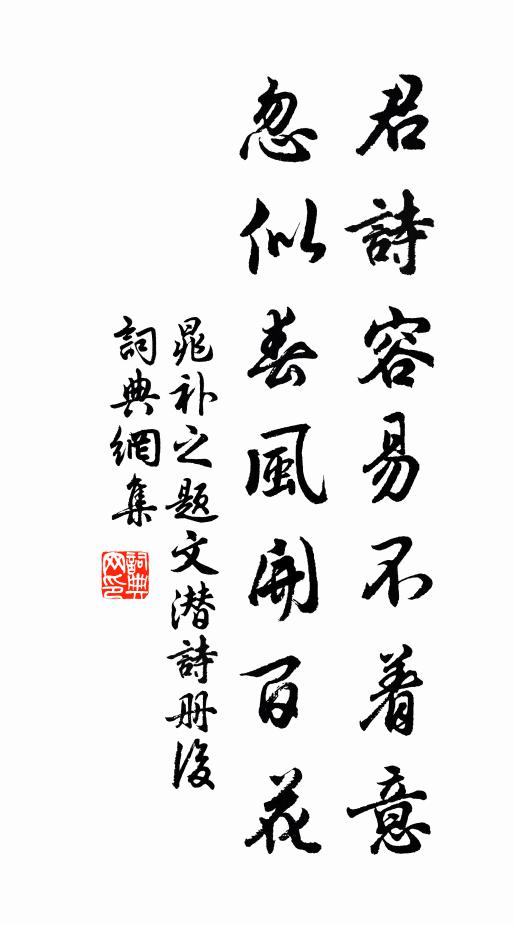 君詩容易不着意
忽似春風開百花
晁补之題文潜詩册後
詞典網集
詞典网印